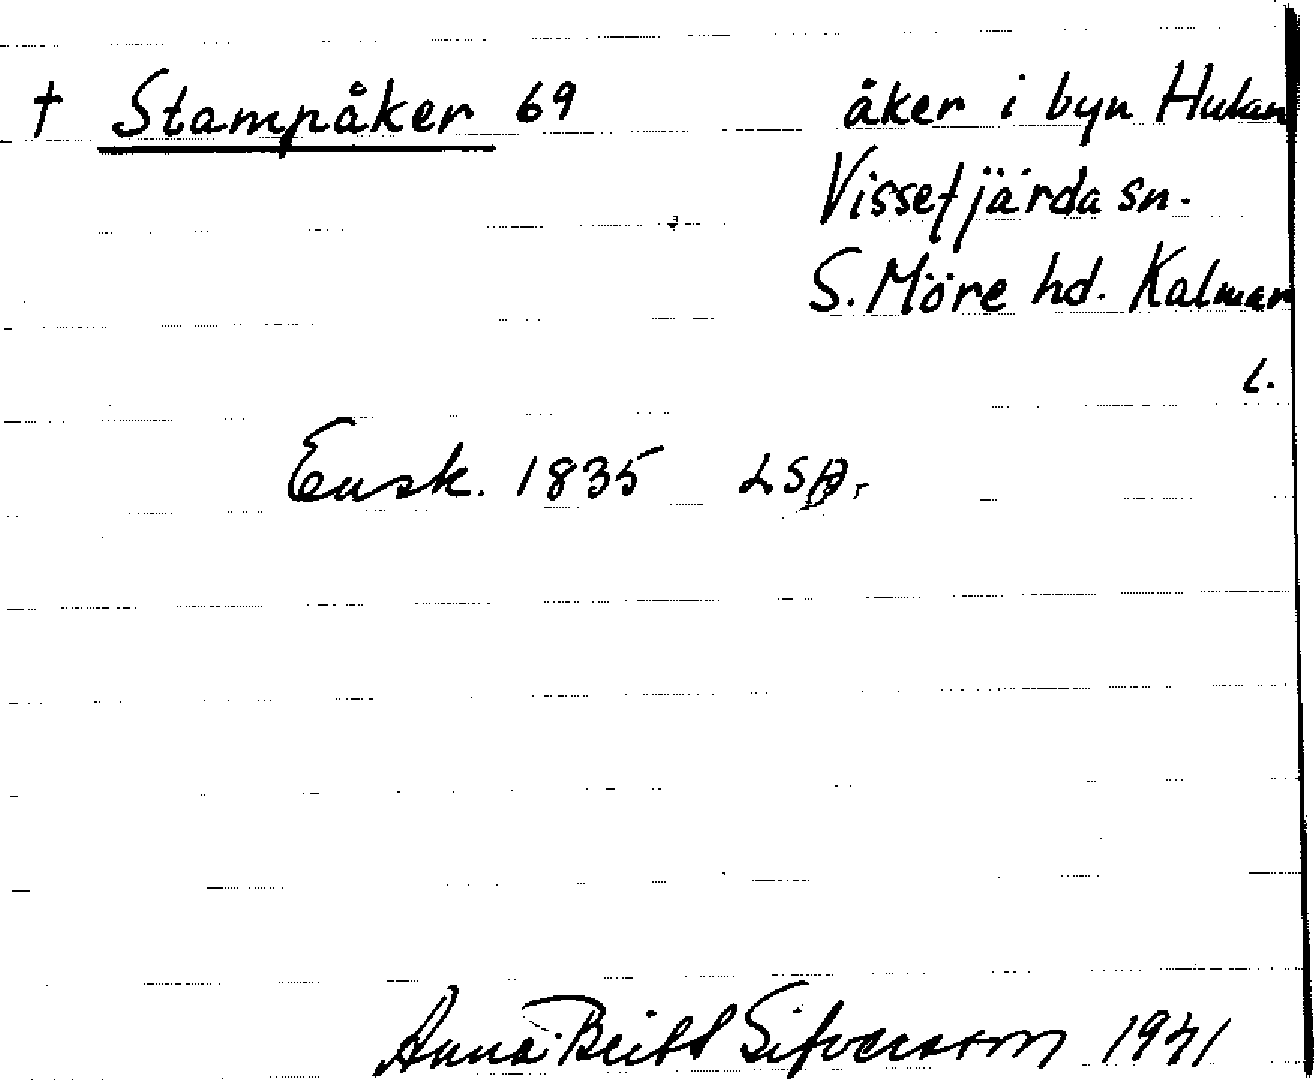 † Stampåker 69 åker i byn Hukan
Vissefjärda sn.
S. Möre hd. Kalmar
l.
Ensk. 1835 LSA.
Anna-Britt Sifversson 1941